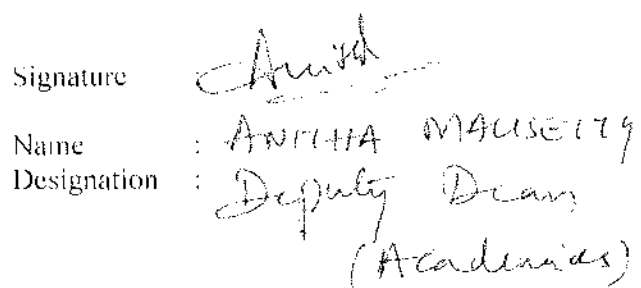 Signature Anith
Name : ANITHA MAUSETTY
Designation : Deputy Dean
(Academics)